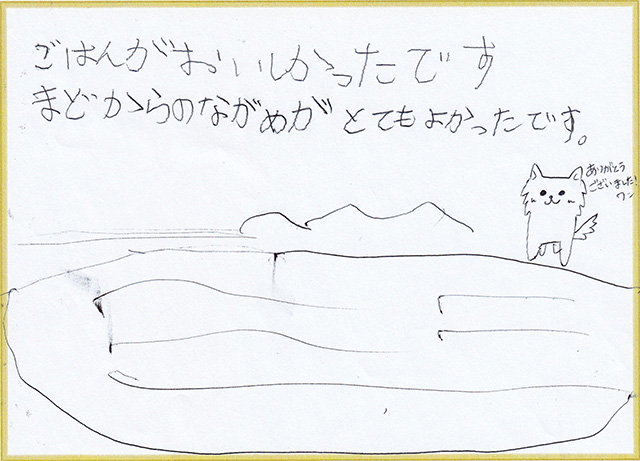 ごはんがおいしかったです
まどからのながめがとてもよかったです。
ありがとう
ございました!
ワン